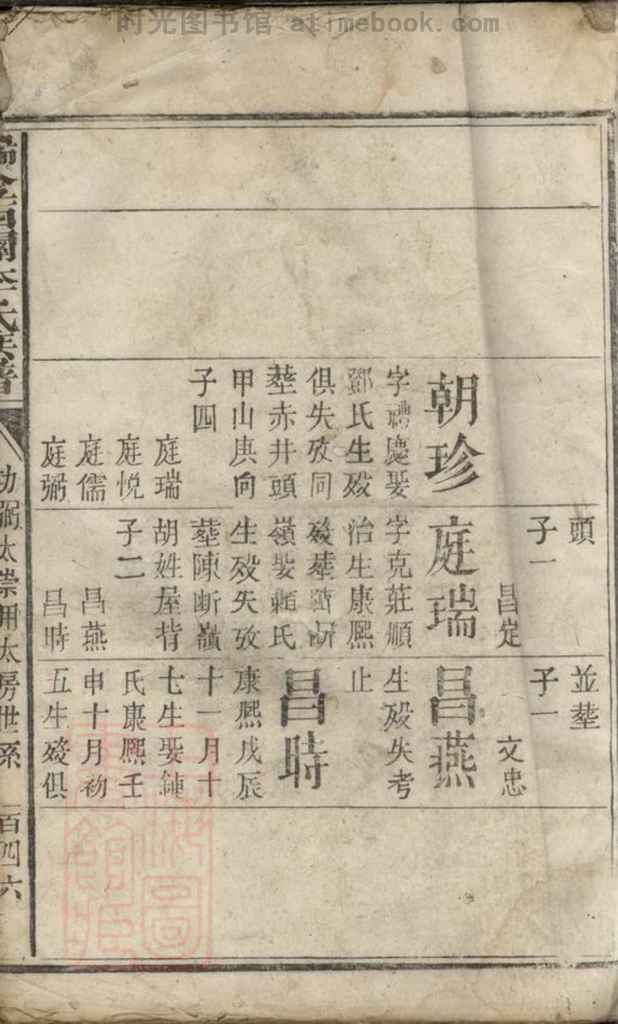 时光图书馆 atimebook.com
朝珍
字禮慶娶
鄧氏生殁
俱失攷同
塟赤井頭
甲山庚向
子四
庭瑞
庭悅
庭儒
庭弼
頭
子一
昌定
庭瑞
字克莊順
治生康熙
殁塟断
嶺娶賴氏
生殁失攷
塟陳断嶺
胡姓屋背
子二
昌燕
昌時
並塟
子一
文忠
昌燕
生殁失考
止
昌時
康熙戊辰
十一月十
七生娶鍾
氏康熙壬
申十月初
五生殁俱
金西關李氏族譜
弼太崇用太房世系
百四六